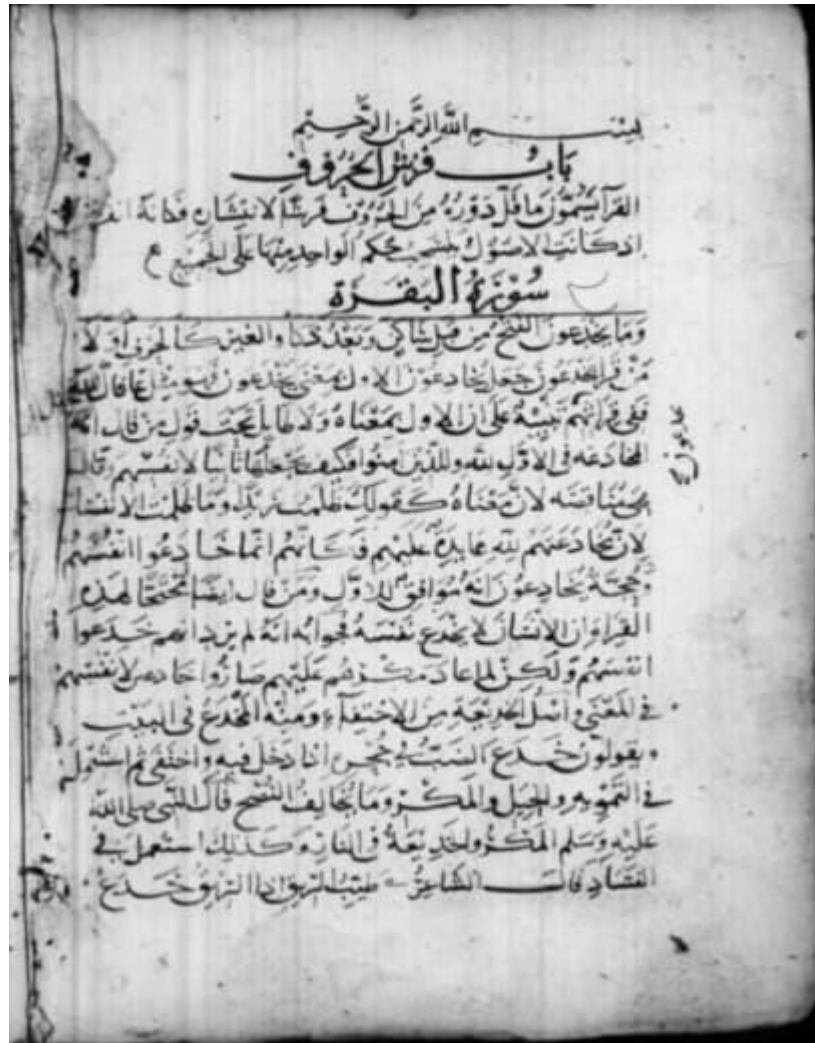 بسم الله الرحمن الرحيم
باب فرش الحروف
القرآء يسمون ما قل دوره من الحروف فرشا لانتشاره فكانه انفرش
اذ كانت الاصول ينسحب حكم الواحد منها على الجميع
سورة البقرة
وما يخدعون الفتح من قبل ساكن وبعد ذكا والغير كالحرف أولا
من قرا يخدعون جعل يخادعون الاول بمعنى يخدعون
ففي قراءتهم تنبيه على ان الاول بمعناه ولا طايل تحت قول من قال ان
المخادعه في الاول لله وللذين امنوا فكيف جعلها ثانيا لانفسهم قال
هي متناقضه لان معناه كقولك ظلمت زيدا وما ظلمت الا نفسك
لان مخادعتهم لله عايدة عليهم فكانهم انما خادعوا انفسهم
وحجة يخادعون انه موافق للاول ومن قال ايضا محتجا لهذه
القراءة ان الانسان لا يخدع نفسه فجوابه انه لم يرد انهم خدعوا
انفسهم ولكن لما عاد مكرهم عليهم صاروا خادعين لانفسهم
في المعنى واصل الخديعة من الاختفاء ومنه المخدع في البيت
ويقولون خدع الضب في جحره اذا دخل فيه واختفى ثم استعمل
في التمويه والحيل والمكر وما يخالف النصح قال النبي صلى الله
عليه وسلم المكر والخديعة في النار وكذلك استعمل في
الفساد قال الشاعر طيب الريق اذا الريق خدع